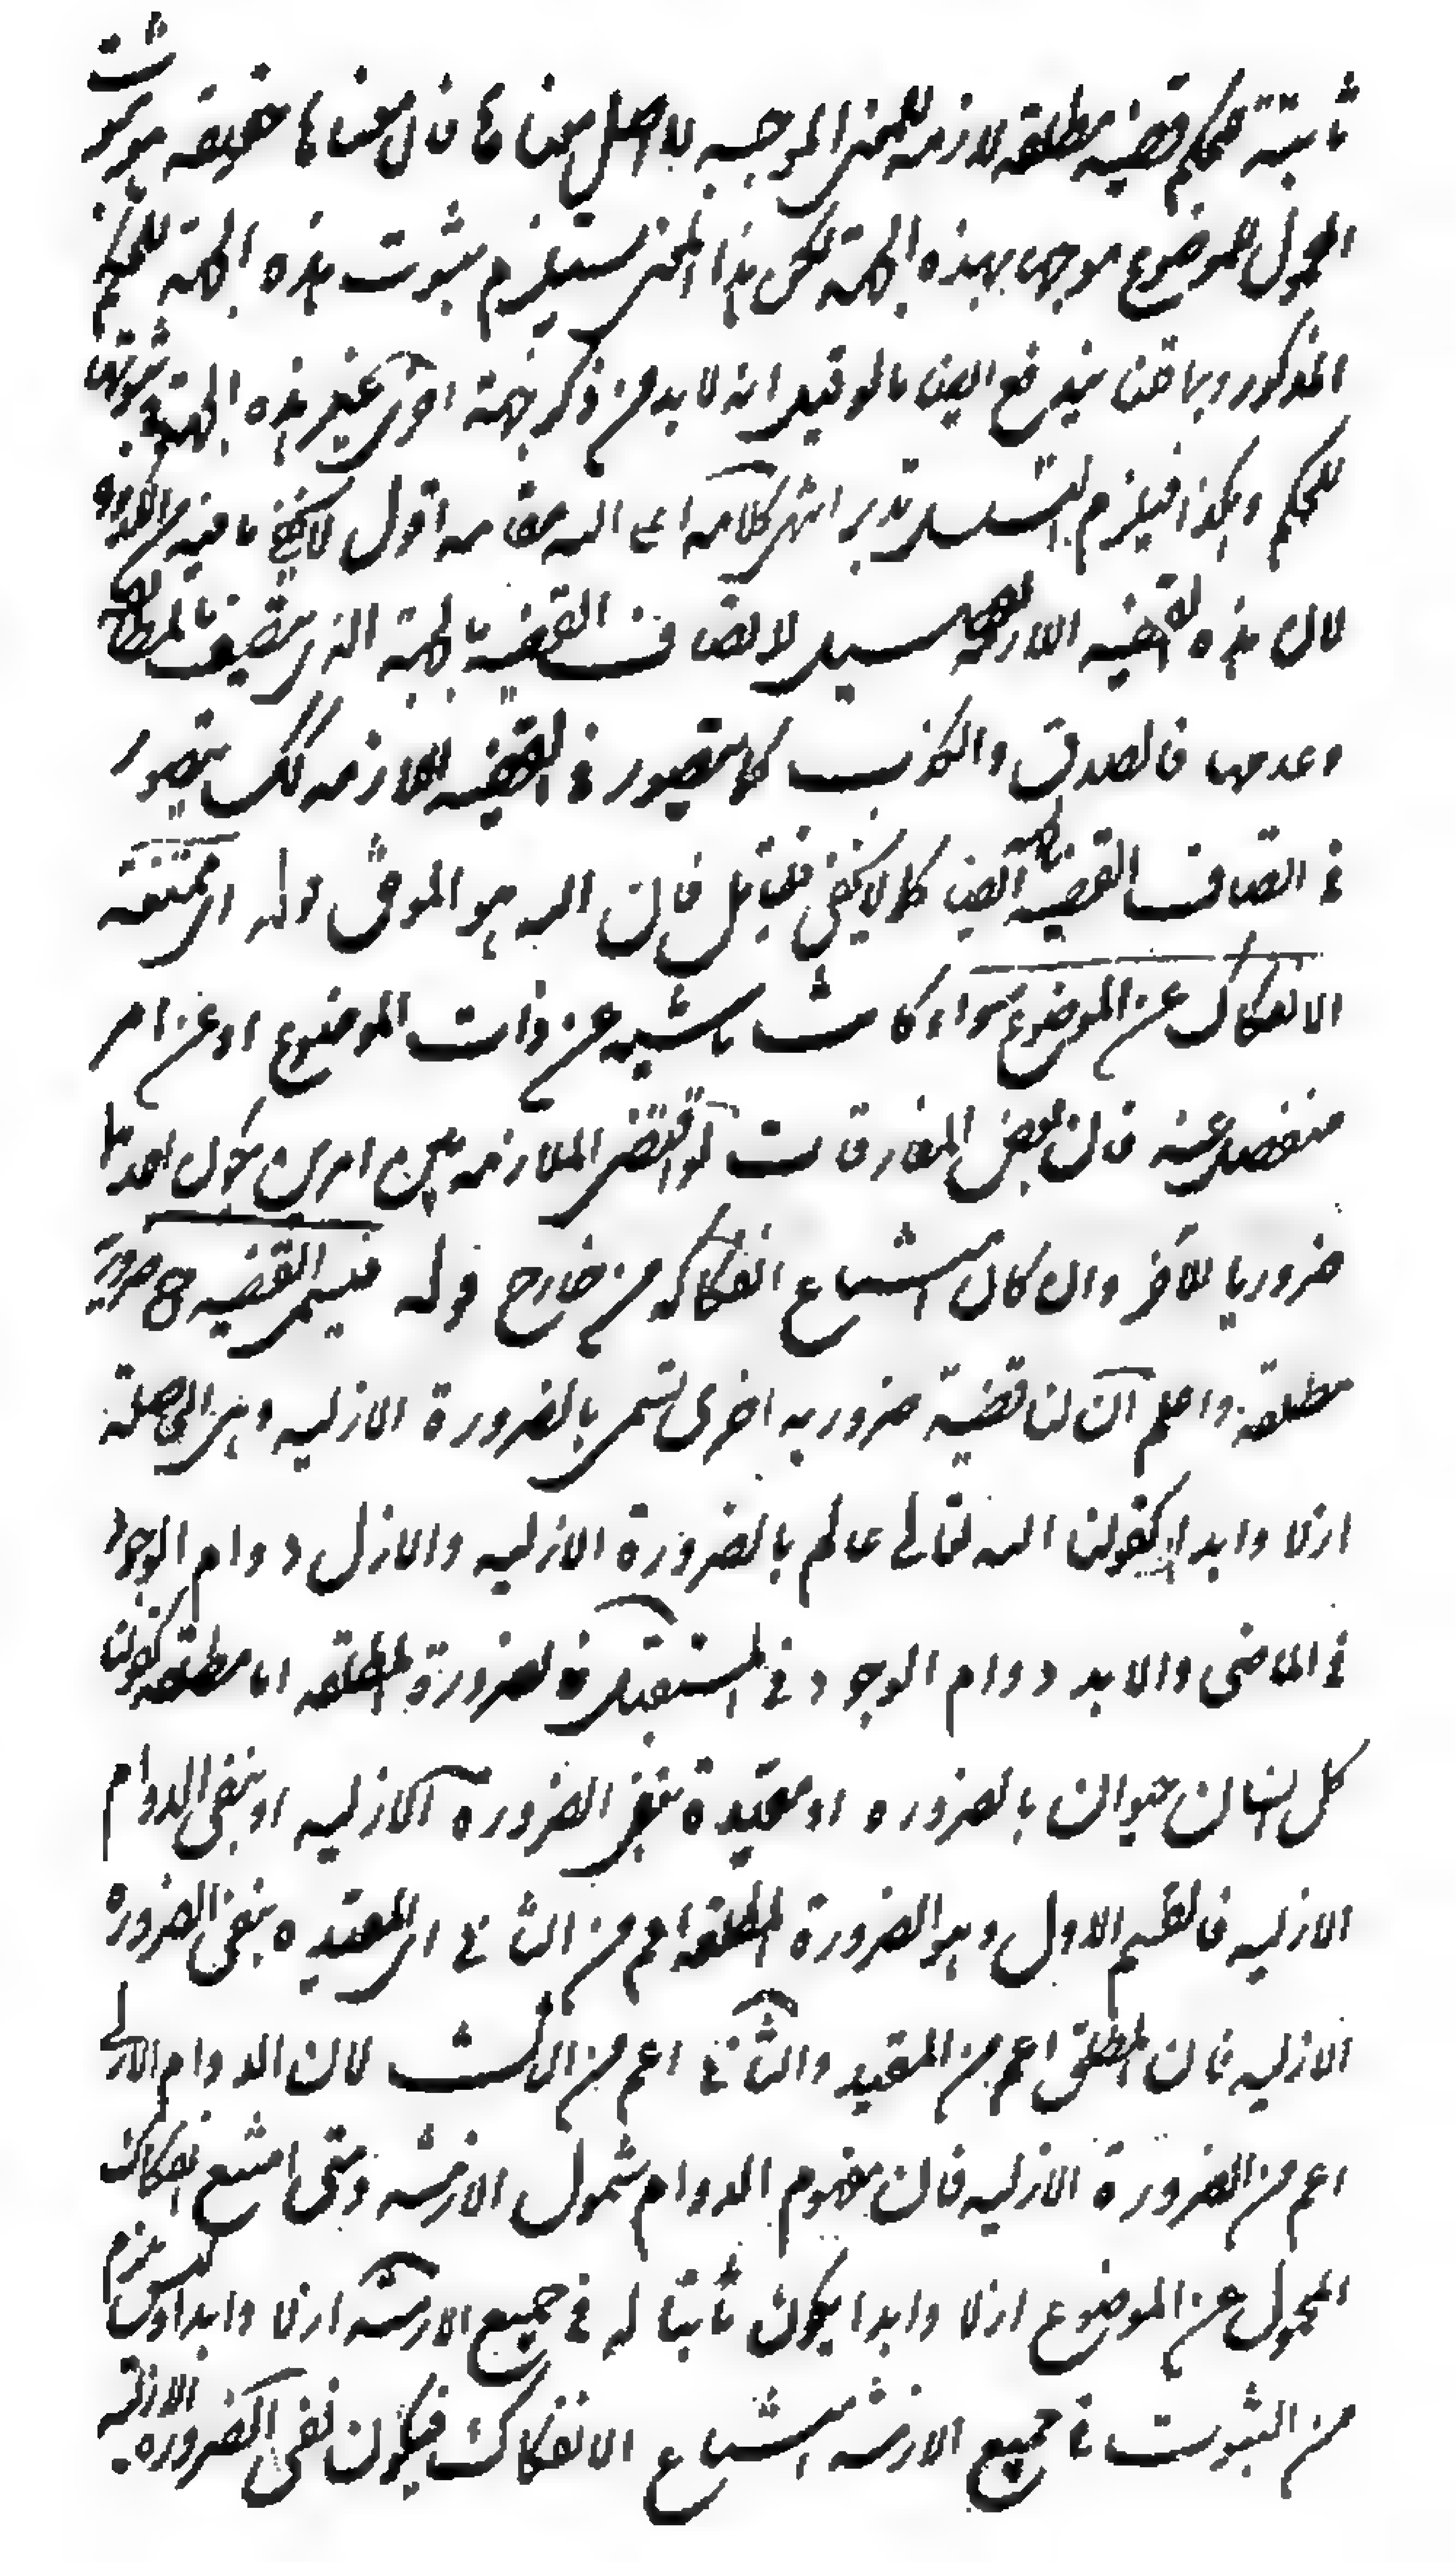 ثابتة للحكم قضية مطلقه لازمه للمعنى الموجبه لا اصل معناها فان معناها حقيقه هو ثبوت
المحمول للموضوع موجها بهذه الجهة لكن هذا المعنى يستلزم ثبوت هذه الجهة للحكم
المذكور وبما قلنا يندفع ايضا ما لو قيل انه لا بد من ذكر جهة اخرى غير هذه الجهة ثبوت
للحكم وهكذا فيلزم التسلسل تدبر انتهى كلامه اعلى الله مقامه اقول لا يخفى ما فيه من
لان هذه القضيه اللازمة سبيل لاتصاف القضية بالجهة الذى يتصف بالمطابقة
وعدمها فالصدق والكذب كما يتصور فى القضيه اللازمه كك يتصور
فى اتصاف القضية ايضا كما لا يخفى فتامل فان الله هو الموفق قوله اى ممتنعة
الانفكاك عن الموضوع سواء كانت ناشيه عن ذات الموضوع او عن امر
منفصل عنه فان بعض المفارقات لو اقتضى الملازمه بين امرين يكون احدهما
ضروريا للاخر وان كان امتناع انفكاكه من خارج قوله فيسمى القضيه ح ضرورية
مطلقة واعلم ان لنا قضية ضروريه اخرى تسمى بالضرورة الازليه وهى الحاصلة
ازلا وابدا كقولنا الله تعالى عالم بالضرورة الازليه والازل دوام الوجود
فى الماضى والابد دوام الوجود فى المستقبل فالضرورة المطلقه اما مطلقه كقولنا
كل انسان حيوان بالضروره او مقيدة بنفى الضرورة الازليه او بنفى الدوام
الازليه فالقسم الاول وهو الضرورة المطلقه اعم من الثانى اى المقيده بنفى الضرورة
الازليه فان المطلق اعم من المقيد والثانى اعم من الثالث لان الدوام الازلى
اعم من الضرورة الازليه فان مفهوم الدوام شمول الازمنه ومتى امتنع انفكاك
المحمول عن الموضوع ازلا وابدا يكون ثابتا له فى جميع الازمنه ازلا وابدا وليس يلزم
من الثبوت فى جميع الازمنه امتناع الانفكاك فيكون نفى الضروره الازليه